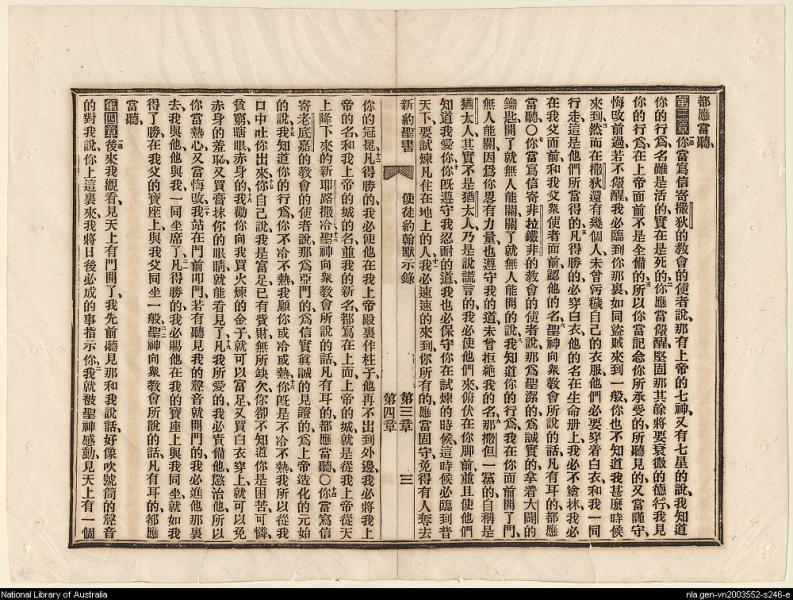 都應當聽、
第三章 你當寫信寄撒狄的教會的使者說、那有上帝的七神、又有七星的說、我知道
你的行爲、名雖是活的、實在是死的、你應當儆醒、堅固那其餘將要衰微的德行、我見
你的行爲、在上帝面前不是全備的、所以你當記念你所承受的所聽見的、又當謹守
悔改前過、若不儆醒、我必臨到你那裏、如同盜賊來到一般、你也不知道我甚麼時候
來到、然而在撒狄還有幾個人、未曾污穢自己的衣服、他們必要穿着白衣和我一同
行走、這是他們所當得的、凡得勝的、必穿白衣、他的名在生命册上、我必不塗抹、我必
在我父面前和我父衆使者面前、認他的名、聖神向衆教會所說的話、凡有耳的、都應
當聽、〇你當寫信寄非拉鐵非的教會的使者說、那爲聖潔的、爲誠實的、拿着大闢的
鑰匙、開了就無人能關、關了就無人能開的說、我知道你的行爲、我在你面前開了門、
無人能關、因爲你畧有力量、也遵守我的道、未曾拒絕我的名、那撒但一黨的、自稱是
猶太人、其實不是猶太人、乃是說謊言的、我必使他們來俯伏在你脚前、並且使他們
知道我愛你、你旣遵守我忍耐的道、我也必保守你在試煉的時候、這時候必臨到普
天下、要試煉凡住在地上的人、我必速速的來到、你所有的應當固守、免得有人奪去
新約聖書 使徒約翰默示錄 第三章 第四章 三
你的冠冕、凡得勝的、我必使他在我上帝殿裏作柱子、他再不出到外邊、我必將我上
帝的名、和我上帝的城的名、並我的新名、都寫在上面、上帝的城、就是從我上帝從天
上降下來的新耶路撒冷、聖神向衆教會所說的話、凡有耳的、都應當聽、〇你當寫信
寄老底嘉的教會的使者說、那爲亞門的、爲信實眞誠的見證的、爲上帝造化的元始
的說、我知道你的行爲、你不冷不熱、我願你或冷或熱、你旣是不冷不熱、我所以從我
口中吐你出來、你自己說、我是富足、已有貨財、無所缺欠、你卻不知道你是困苦、可憐
貧窮、瞎眼、赤身的、我勸你向我買火煉的金子、就可以富足、又買白衣穿上、就可以免
赤身的羞恥、又買膏抹你的眼睛、就能看見了、凡我所愛的、我必責備他懲治他、所以
你當熱心、又當悔改、我站在門前叩門、若有聽見我的聲音就開門的、我必進他那裏
去、我與他、他與我、一同坐席了、凡得勝的、我必賜他在我的寶座上與我同坐、就如我
得了勝、在我父的寶座上、與我父同坐一般、聖神向衆教會所說的話、凡有耳的、都應
當聽、
第四章 後來我觀看、見天上有門開了、我先前聽見那和我說話好像吹號筒的聲音
的、對我說、你上這裏來、我將日後必成的事指示你、我就被聖神感動、見天上有一個
National Library of Australia
nla.gen-vn2003552-s246-e